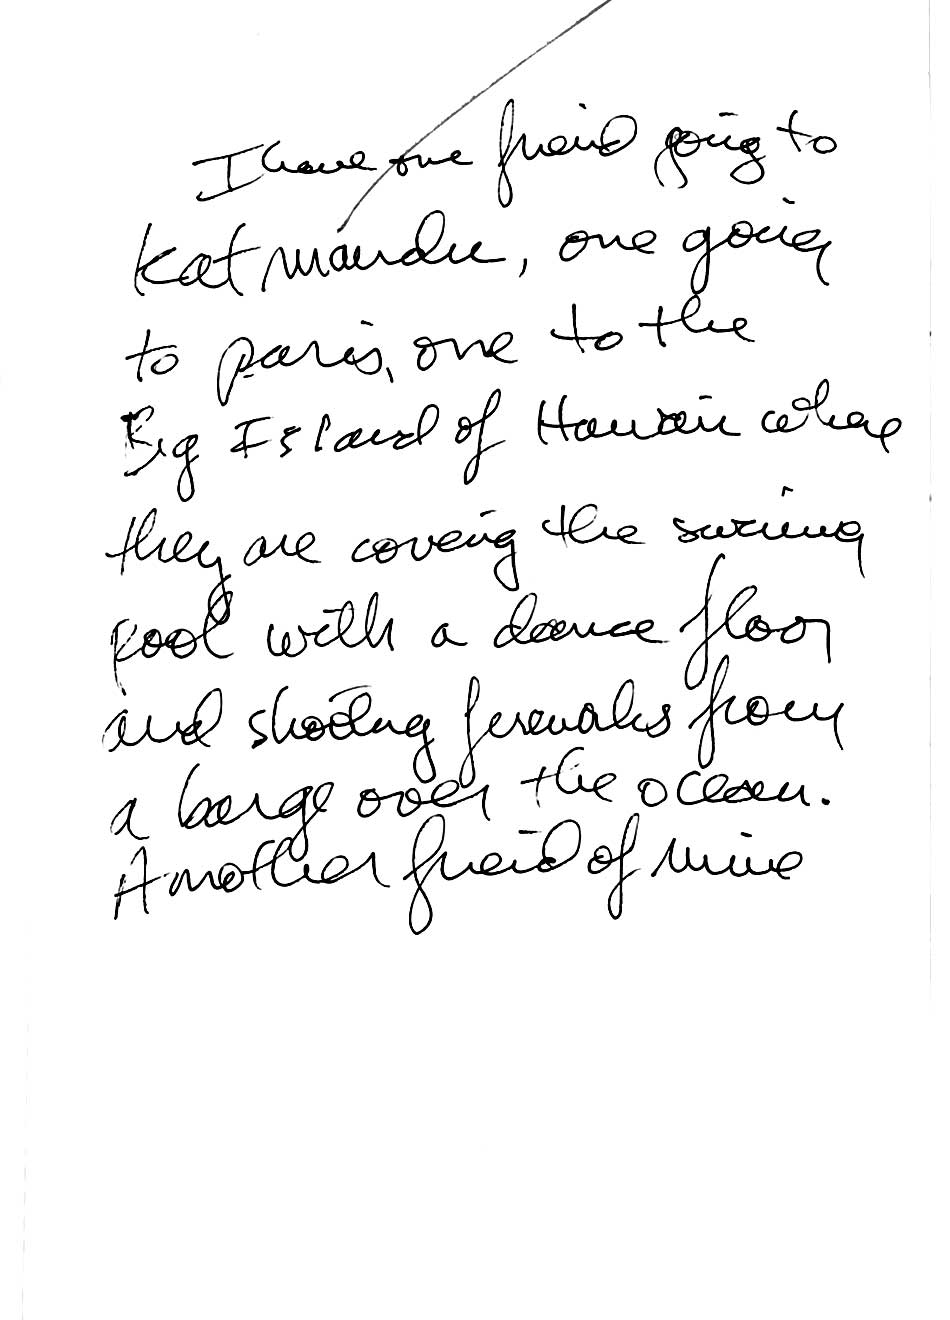 I have one friend going to
Katmandu, one going
to paris, one to the
Big Island of Hawaii where
they are covering the swimming
pool with a dance floor
and shooting fireworks from
a barge over the ocean.
Another friend of mine